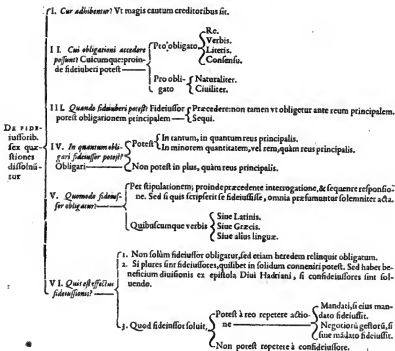 I. Cur adhibentur? Vt magis cautum creditoribus sit.
II. Cui obligationi accedere possunt? Cuicumque: proinde fideiuberi potest
Pro obligato
Re.
Verbis.
Literis.
Consensu.
Pro obligato
Naturaliter.
Ciuiliter.
III. Quando fideiuberi potest: Fideiussor potest obligationem principalem
Præcedere: non tamen vt obligetur ante reum principalem.
Sequi.
DE FIDEiussorib. sex quæstiones dissoluūtur
IV. In quantum obligari fideiussor potest? Obligari
Potest
In tantum, in quantum reus principalis.
In minorem quantitatem, vel rem, quàm reus principalis.
Non potest in plus, quàm reus principalis.
V. Quomodo fideiussor obligatur?
Per stipulationem; proinde præcedente interrogatione, & sequente responsione. Sed si quis scripserit se fideiussisse, omnia præsumuntur solemniter acta.
Quibuscumque verbis
Siue Latinis.
Siue Græcis.
Siue alius linguæ.
VI. Quis est effectus fideiussionis?
1. Non solùm fideiussor obligatur, sed etiam heredem relinquit obligatum.
2. Si plures sint fideiussores, quilibet in solidum conueniri potest. Sed habet beneficium diuisionis ex epistola Diui Hadriani, si confideiussores sint soluendo.
3. Quod fideiussor soluit,
Potest à reo repetere actione
Mandati, si eius mandato fideiussit.
Negotiorū gestorū, si sine mādato fideiussit.
Non potest repetere à confideiussore.